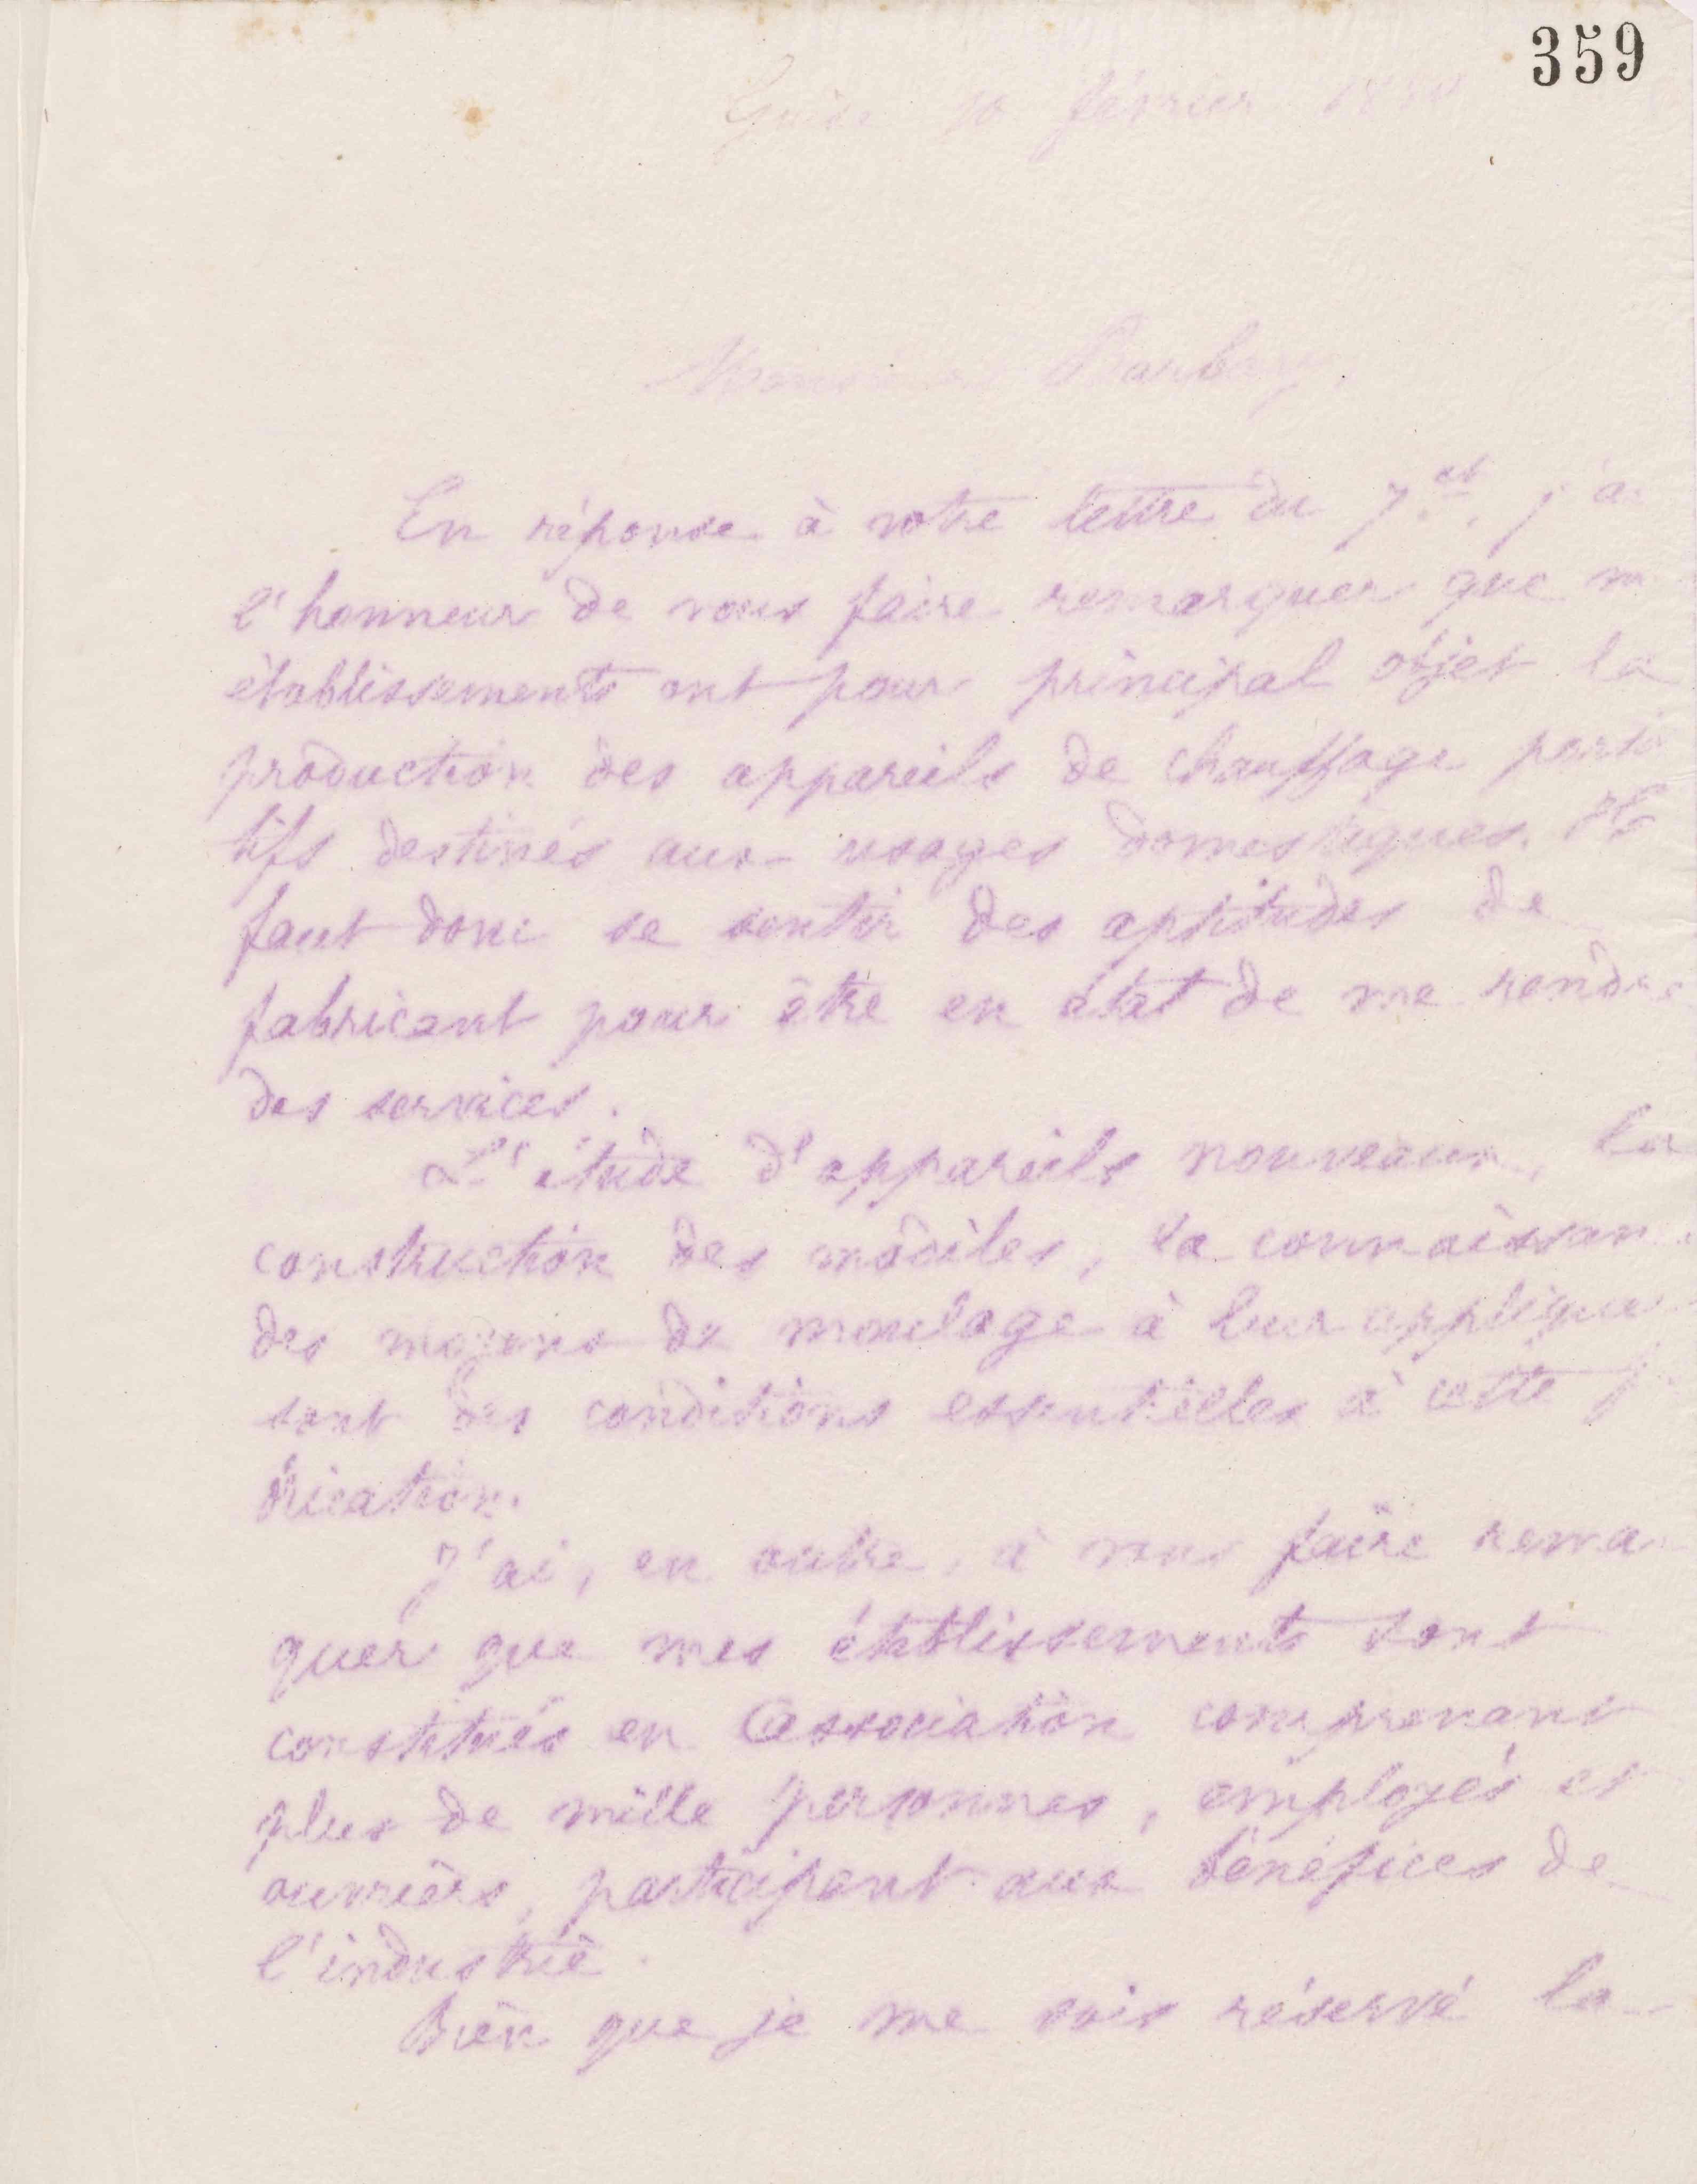 359
Guise 10 février 188
Monsieur Barbary,
En réponse à votre lettre du 7 ct, j'a
l'honneur de vous faire remarquer que m
établissements ont pour principal objet la
production des appareils de chauffage porta
tifs destinés aux usages domestiques. Il
faut donc se sentir des aptitudes de
fabricant pour être en état de me rendre
des services.
L'étude d'appareils nouveaux, la
construction des modèles, la connaissan
des moyens de moulage à leur applique
sont des conditions essentielles à cette f
brication.
J'ai, en outre, à vous faire rema
quer que mes établissements sont
constitués en Association comprenant
plus de mille personnes, employés et
ouvriers, participant aux bénéfices de
l'industrie.
Bien que je me sois réservé la